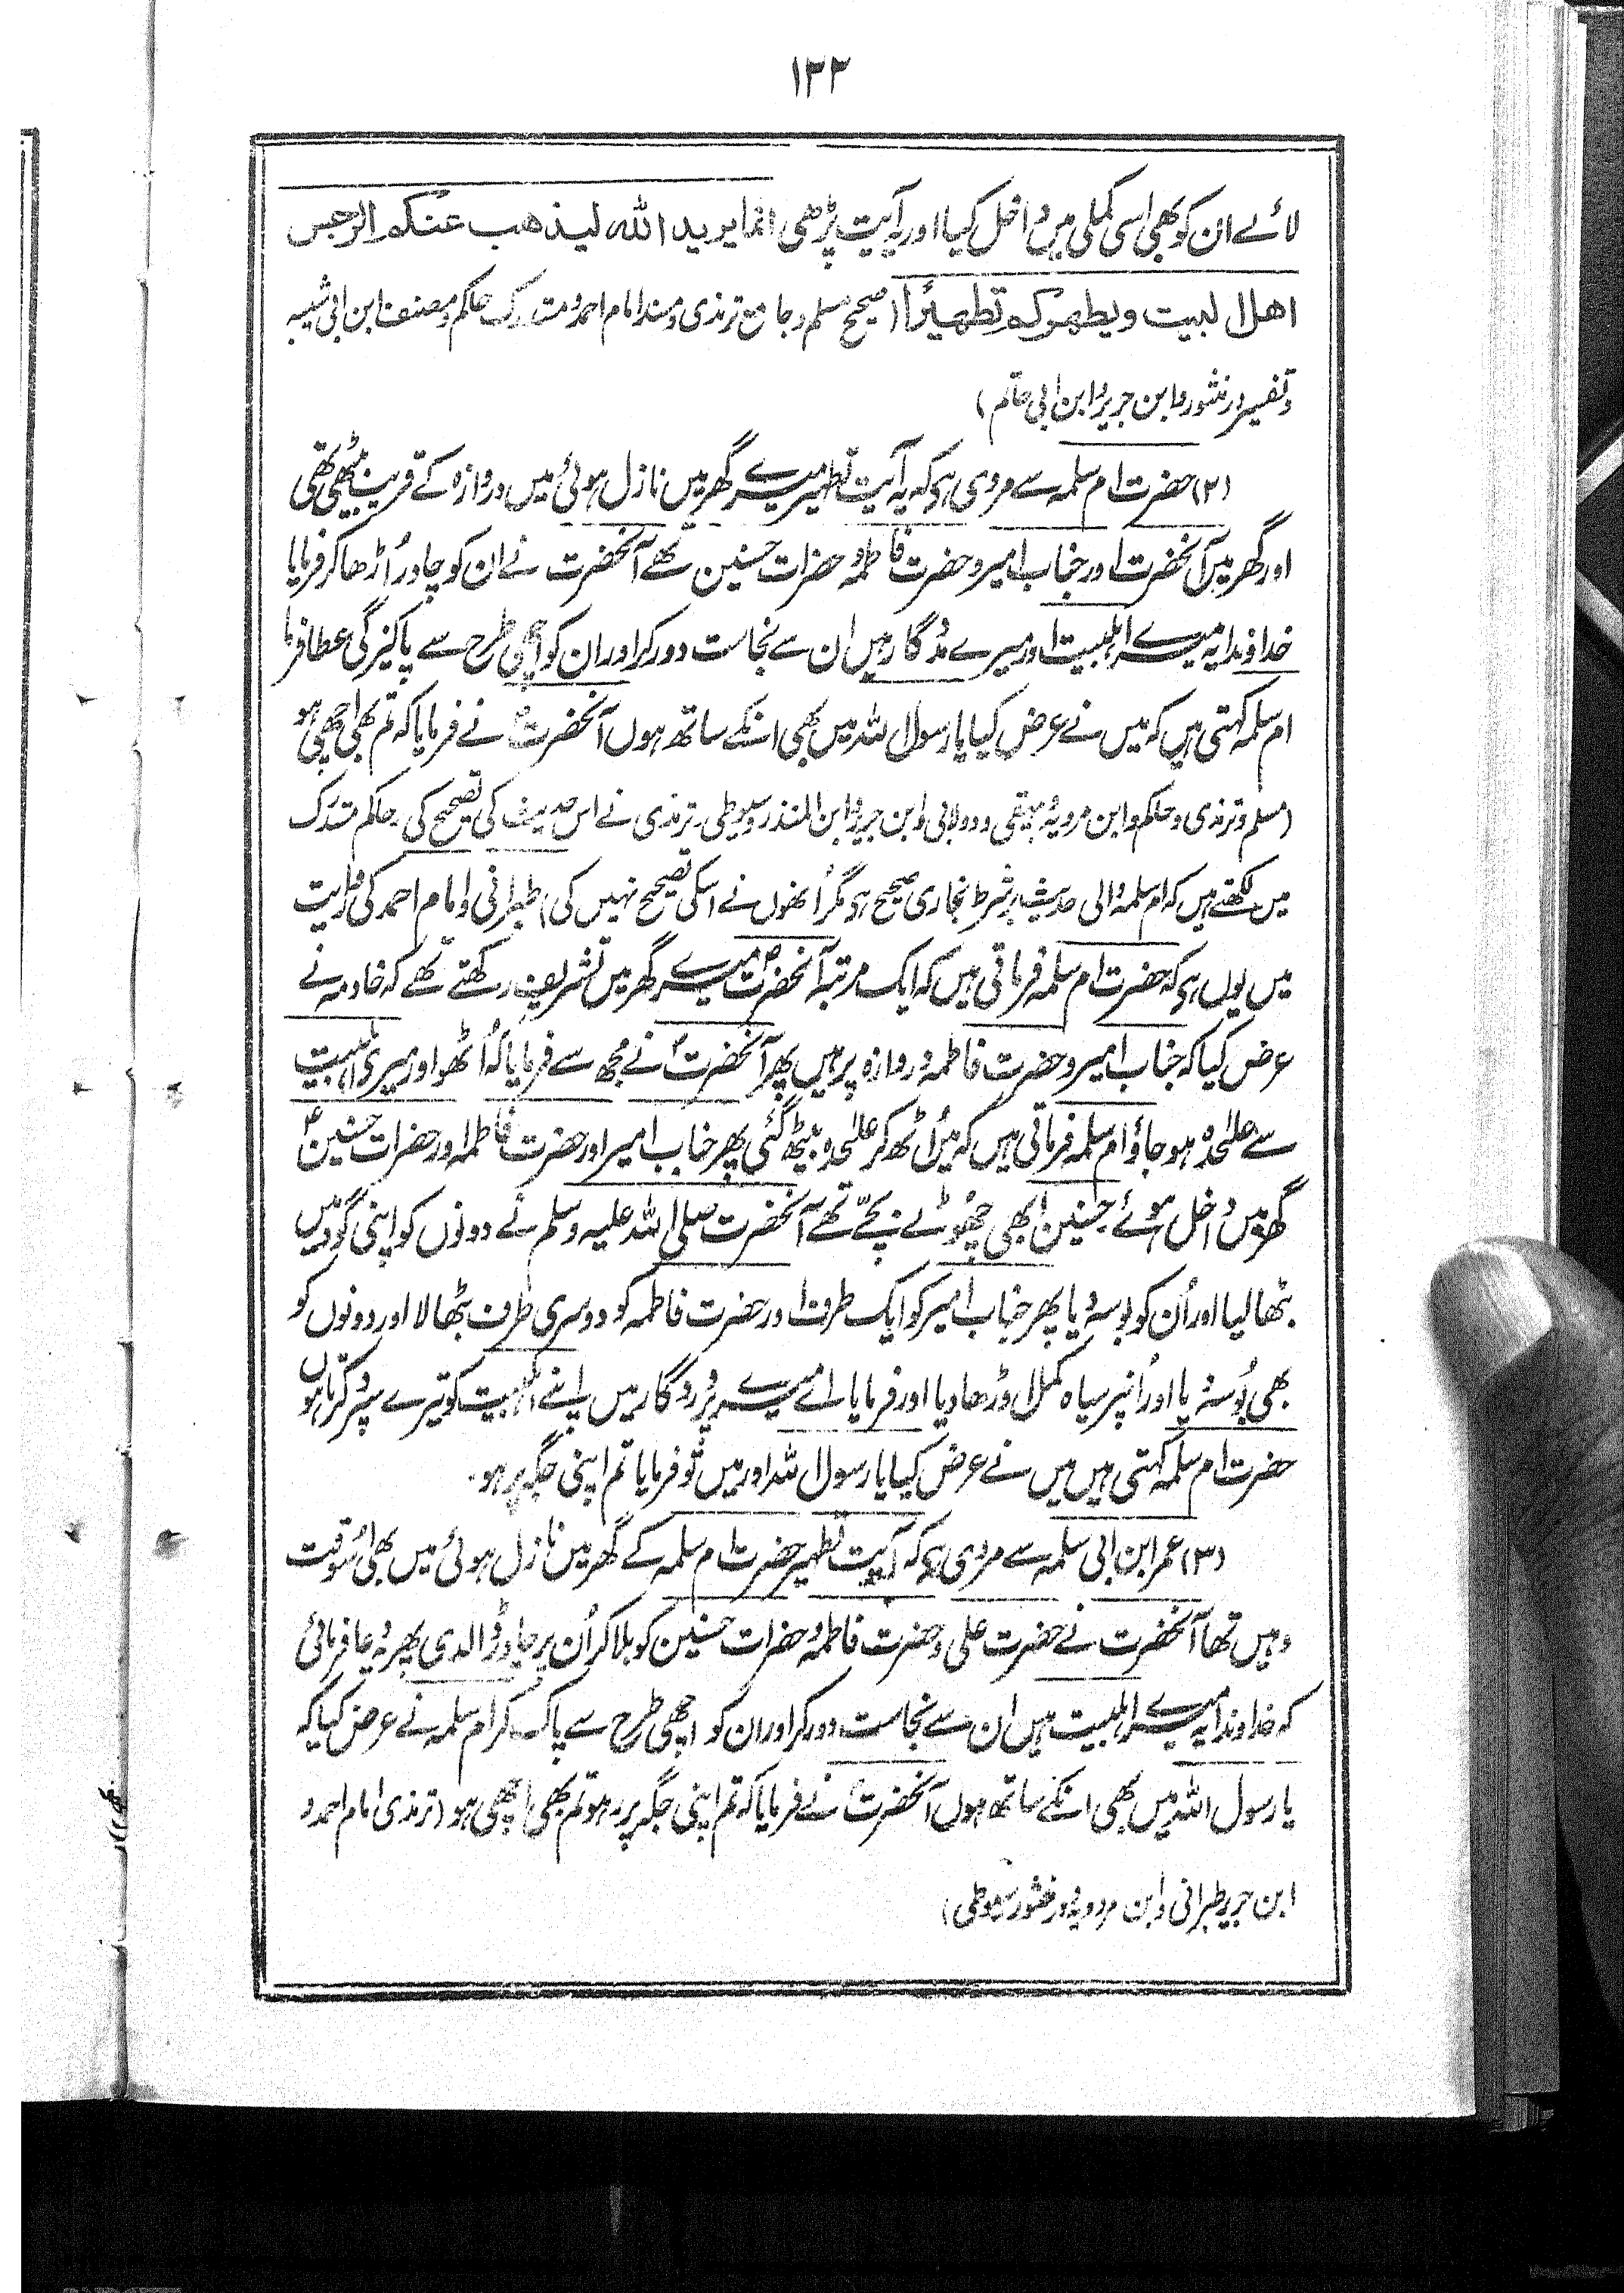 ۱۳۲
لائے ان کو بھی اسی کملی میں داخل کیا اور یہ آیت پڑھی انما یرید اللہ لیذھب عنکم الرجس
اھل البیت ویطھرکم تطھیرًا (صحیح مسلم وجامع ترمذی ومسند امام احمد ومستدرک حاکم ومصنف ابن ابی شیبہ
وتفسیر درمنثور وابن جریر وابن ابی حاتم)
(۲) حضرت ام سلمہ سے مروی ہے کہ یہ آیت تطہیر میرے گھر میں نازل ہوئی میں دروازہ کے قریب بیٹھی تھی
اور گھر میں آنحضرت اور جناب امیر وحضرت فاطمہ وحضرات حسنین تھے آنحضرت نے ان کو چادر اُڑھا کر فرمایا
خداوندا یہ میرے اہلبیت اور میرے مددگار ہیں ان سے نجاست دور کر اور ان کو اچھی طرح سے پاکیزگی عطا فرما
ام سلمہ کہتی ہیں کہ میں نے عرض کیا یا رسول اللہ میں بھی انکے ساتھ ہوں آنحضرتؐ نے فرمایا کہ تم بھی اچھی ہو
(مسلم وترمذی وحاکم وابن مردویہ وبیہقی ودولابی وابن جریر وابن المنذر وسیوطی۔ ترمذی نے اس حدیث کی تصحیح کی۔ حاکم مستدرک
میں لکھتے ہیں کہ ام سلمہ والی حدیث برشرط بخاری صحیح ہے مگر اُنھوں نے اسکی تصحیح نہیں کی) طبرانی وامام احمد کی روایت
میں یوں ہے کہ حضرت ام سلمہ فرماتی ہیں کہ ایک مرتبہ آنحضرتؐ میرے گھر میں تشریف رکھتے تھے کہ خادمہ نے
عرض کیا کہ جناب امیر وحضرت فاطمہ دروازہ پر ہیں پھر آنحضرتؐ نے مجھ سے فرمایا کہ اُٹھو اور میری اہلبیت
سے علٰحدہ ہو جاؤ ام سلمہ فرماتی ہیں کہ میں اُٹھ کر علٰحدہ بیٹھ گئی پھر جناب امیر اور حضرت فاطمہ اور حضرات حسنینؑ
گھر میں داخل ہوئے حسنین ابھی چھوٹے بچے تھے آنحضرت صلی اللہ علیہ وسلم نے دونوں کو اپنی گود میں
بٹھا لیا اور اُن کو بوسہ دیا پھر جناب امیر کو ایک طرف اور حضرت فاطمہ کو دوسری طرف بٹھالا اور دونوں کو
بھی بوسہ دیا اور اُنپر سیاہ کمل اوڑھا دیا اور فرمایا اے میرے پروردگار میں اپنے اہلبیت کو تیرے سپرد کرتا ہوں
حضرت ام سلمہ کہتی ہیں میں نے عرض کیا یا رسول اللہ اور میں تو فرمایا تم اپنی جگہ پر ہو۔
(۳) عمر ابن ابی سلمہ سے مروی ہے کہ آیت تطہیر حضرت ام سلمہ کے گھر میں نازل ہوئی میں بھی اُسوقت
وہیں تھا آنحضرت نے حضرت علی وحضرت فاطمہ وحضرات حسنین کو بلا کر اُن پر چادر ڈالدی پھر یہ دعا فرمائی
کہ خداوندا یہ میرے اہلبیت ہیں ان سے نجاست دور کر اور ان کو اچھی طرح سے پاک کر ام سلمہ نے عرض کیا کہ
یا رسول اللہ میں بھی انکے ساتھ ہوں آنحضرتؐ نے فرمایا کہ تم اپنی جگہ پر رہو تم بھی اچھی ہو (ترمذی امام احمد و
ابن جریر طبرانی وابن مردویہ ودرمنثور سیوطی)